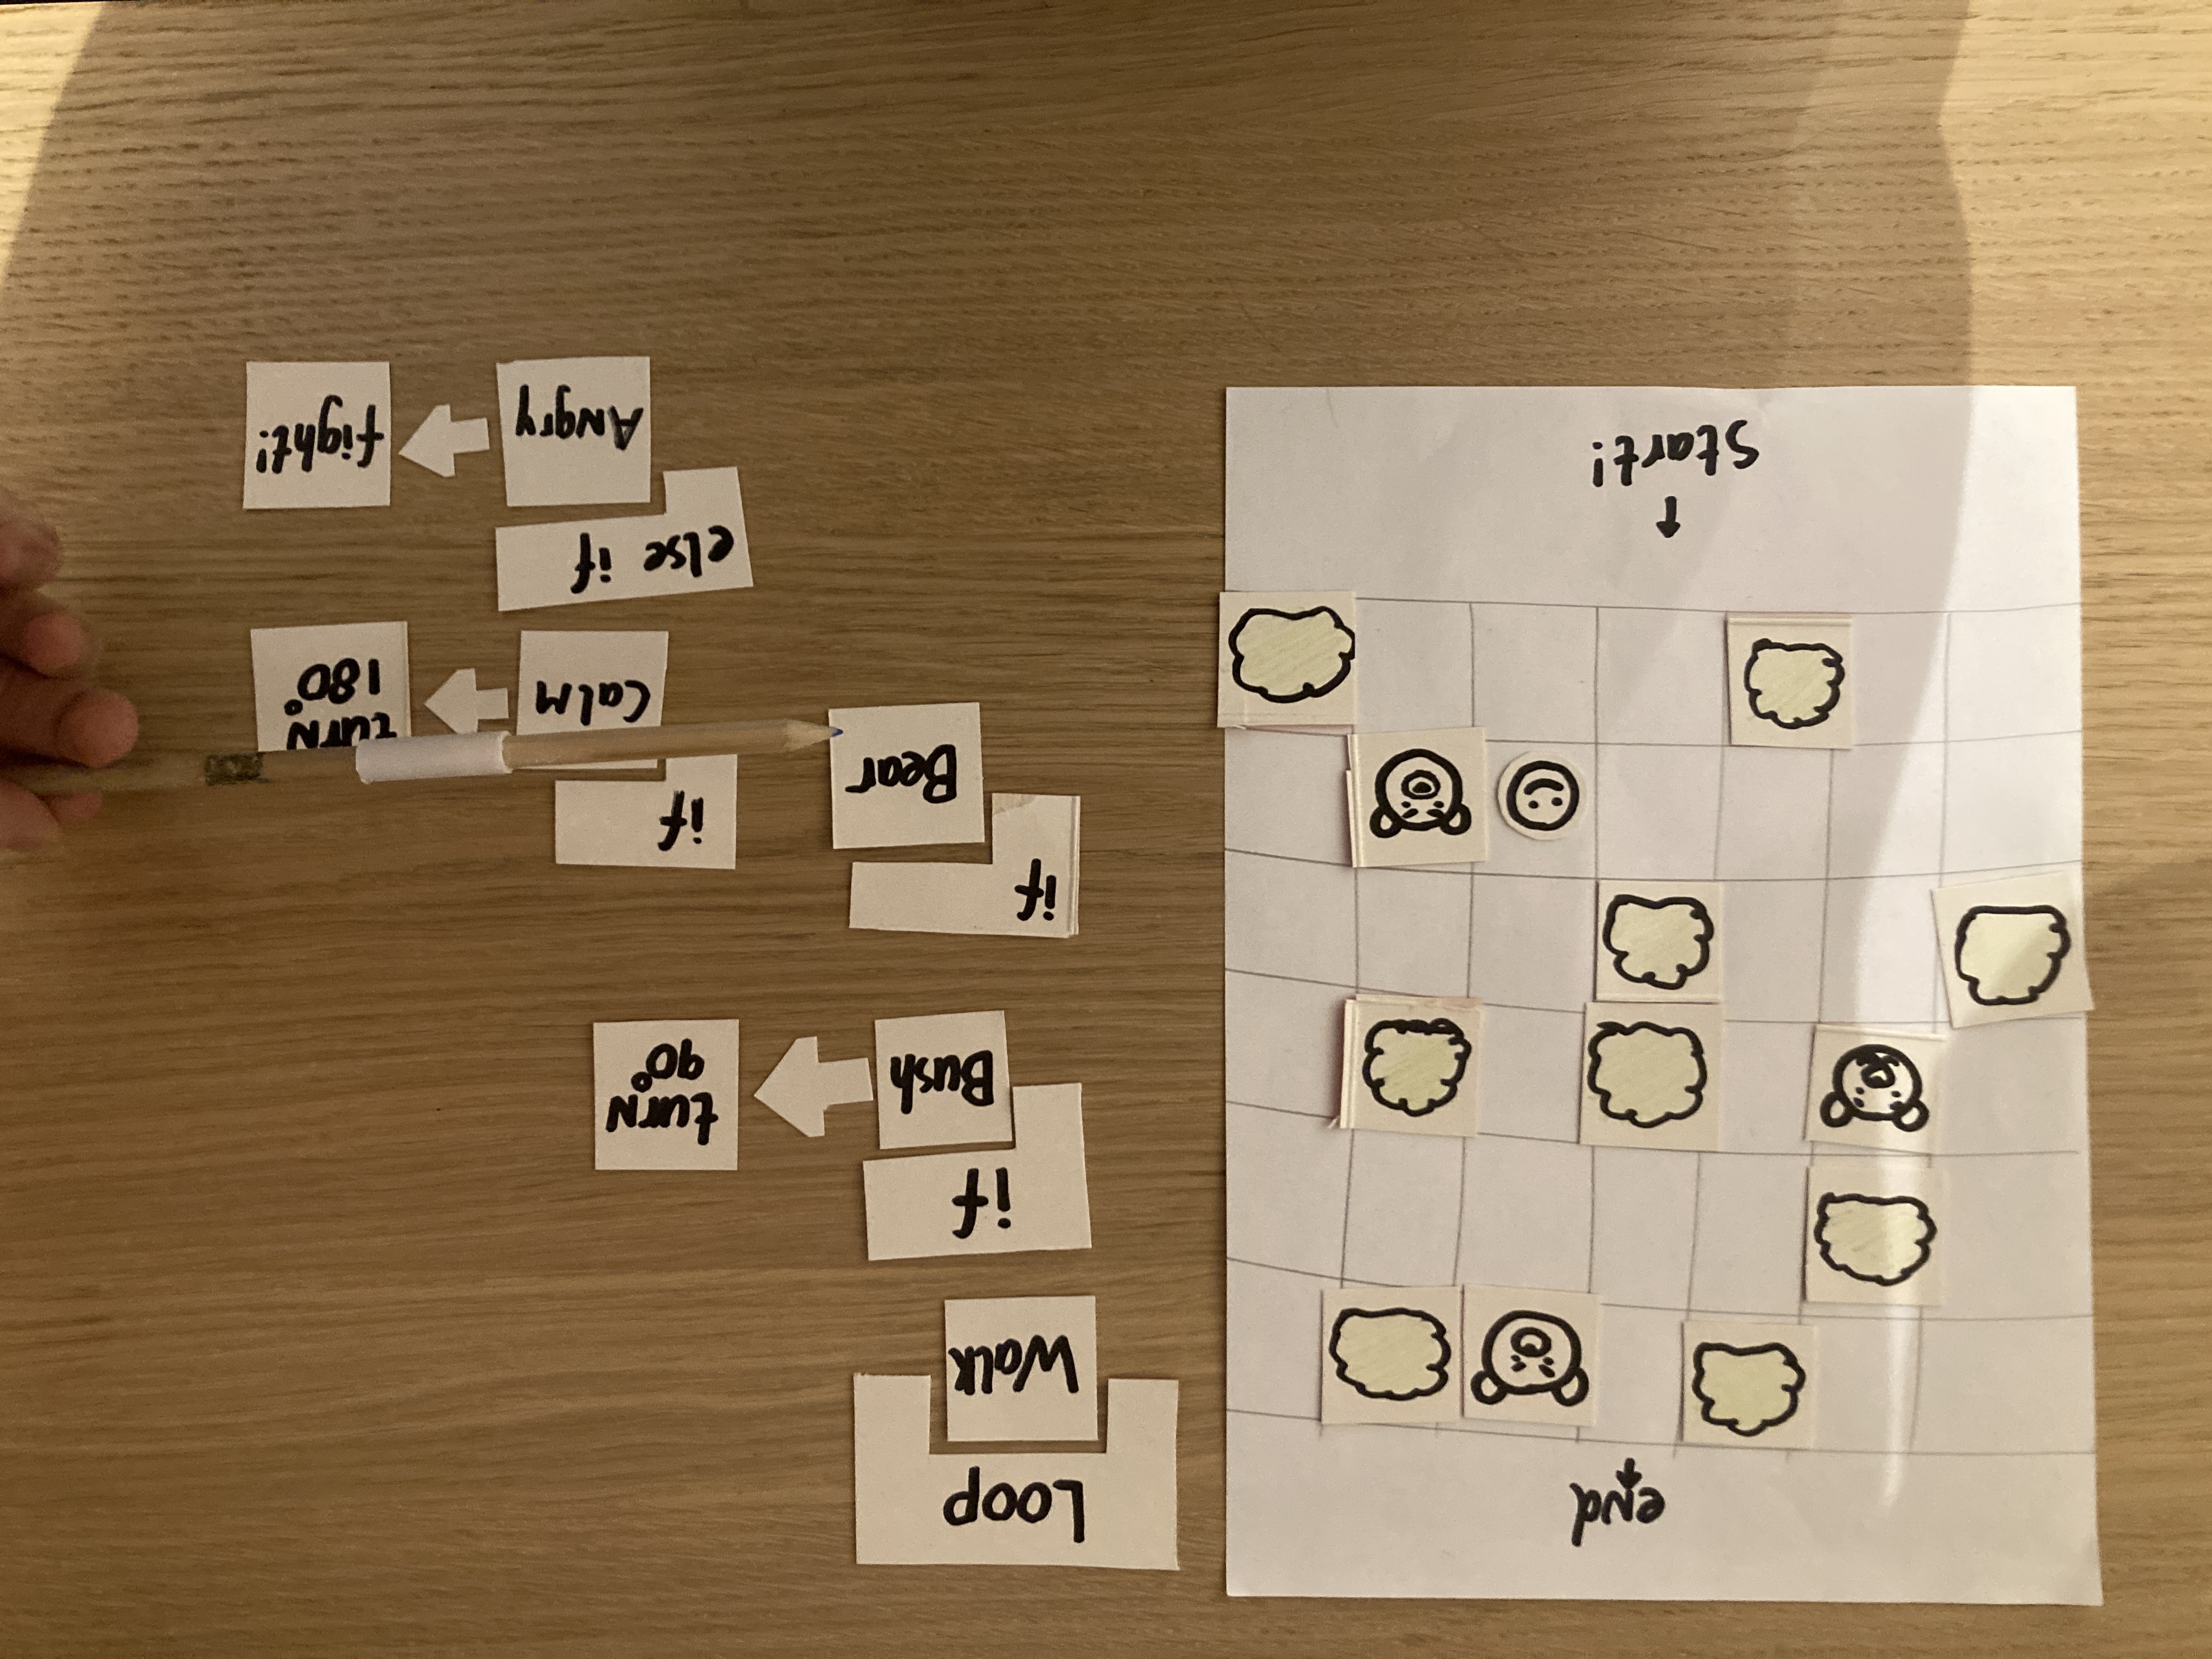 end
Start!
Loop
Walk
if
Bush
turn
90°
if
Bear
if
Calm
turn
180°
else if
Angry
fight!